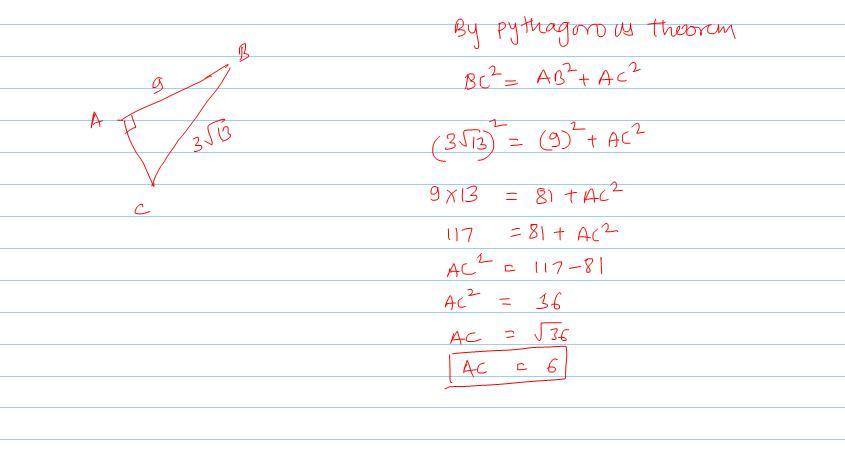 By pythagorous theorem
BC² = AB² + AC²
(3√13)² = (9)² + AC²
9×13 = 81 + AC²
117 = 81 + AC²
AC² = 117-81
AC² = 36
AC = √36
AC = 6
B
9
A
3√13
C